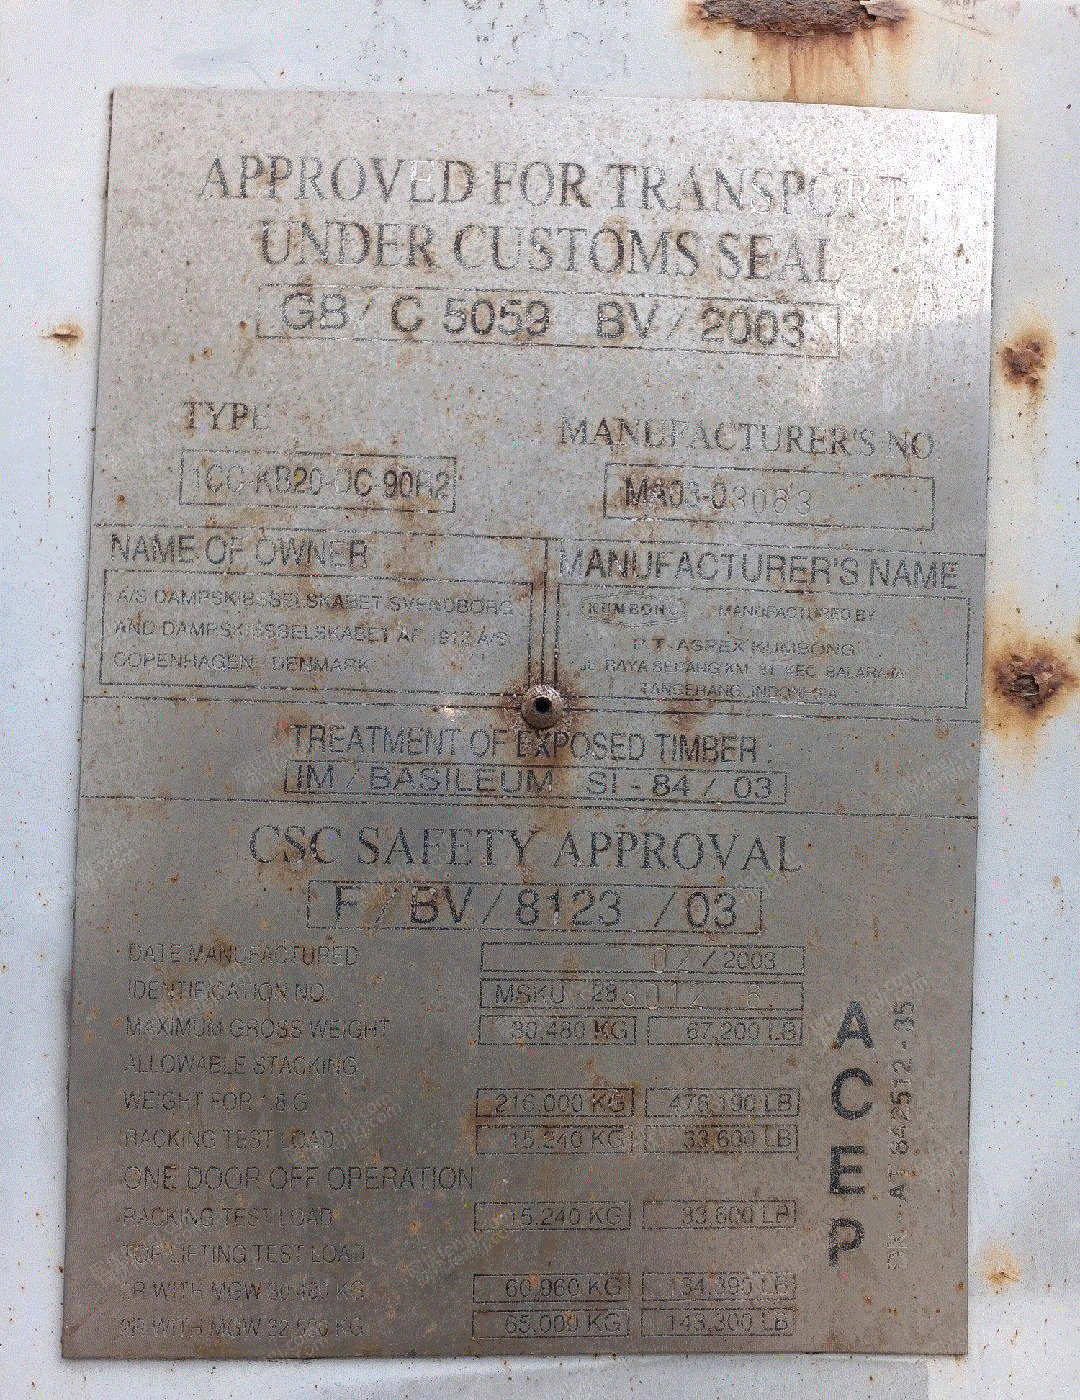 APPROVED FOR TRANSPORT
UNDER CUSTOMS SEAL
GB/ C 5059 BV / 2003
TYPE
1CC-KB20-OC-90R2
MANUFACTURER'S NO.
MA03-03083
NAME OF OWNER
A/S DAMPSKIBSSELSKABET SVENDBORG
AND DAMPSKIBSSELSKABET AF 1912 A/S
COPENHAGEN DENMARK
MANUFACTURER'S NAME
KUMBONG MANUFACTURED BY
P.T. ASPEX KUMBONG
JL. RAYA SERANG KM. KEC. BALARAJA
TANGERANG, INDONESIA
TREATMENT OF EXPOSED TIMBER
IM / BASILEUM SI - 84 / 03
CSC SAFETY APPROVAL
F / BV / 8123 / 03
DATE MANUFACTURED / 2003
IDENTIFICATION NO. MSKU
MAXIMUM GROSS WEIGHT 30,480 KG 67,200 LB
ALLOWABLE STACKING
WEIGHT FOR 1.8 G 216,000 KG 476,190 LB
RACKING TEST LOAD 15,240 KG 33,600 LB
ONE DOOR OFF OPERATION
RACKING TEST LOAD 15,240 KG 33,600 LB
TOP LIFTING TEST LOAD
OR WITH MGW 30,480 KG 60,960 KG 134,390 LB
OR WITH MGW 32,500 KG 65,000 KG 143,300 LB
ACEP